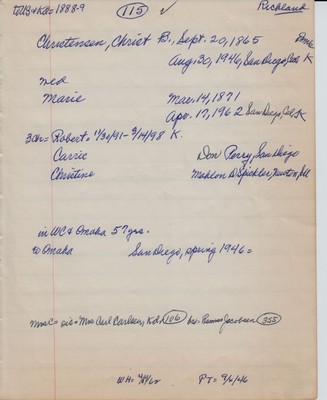 (115) ✓ Richland
Christensen, Christ B., Sept. 20, 1865
Aug. 30, 1946, San Diego, Cal. K
wed
Marie Mar. 14, 1871
Apr. 17, 1962 San Diego, Cal. K
3 ch = Robert. 1/30/91 - 3/14/98 K.
Carrie Don Perry, San Diego
Christine Mahlon D. Spickler, Newton, Ill
in WC & Omaha 57 yrs.
to Omaha San Diego, spring 1946 =
Mrs C = sis = Mrs Carl Carlsen, Kd. (106) bro = Rasmus Jacobsen (355)
WH= PT= 9/6/46